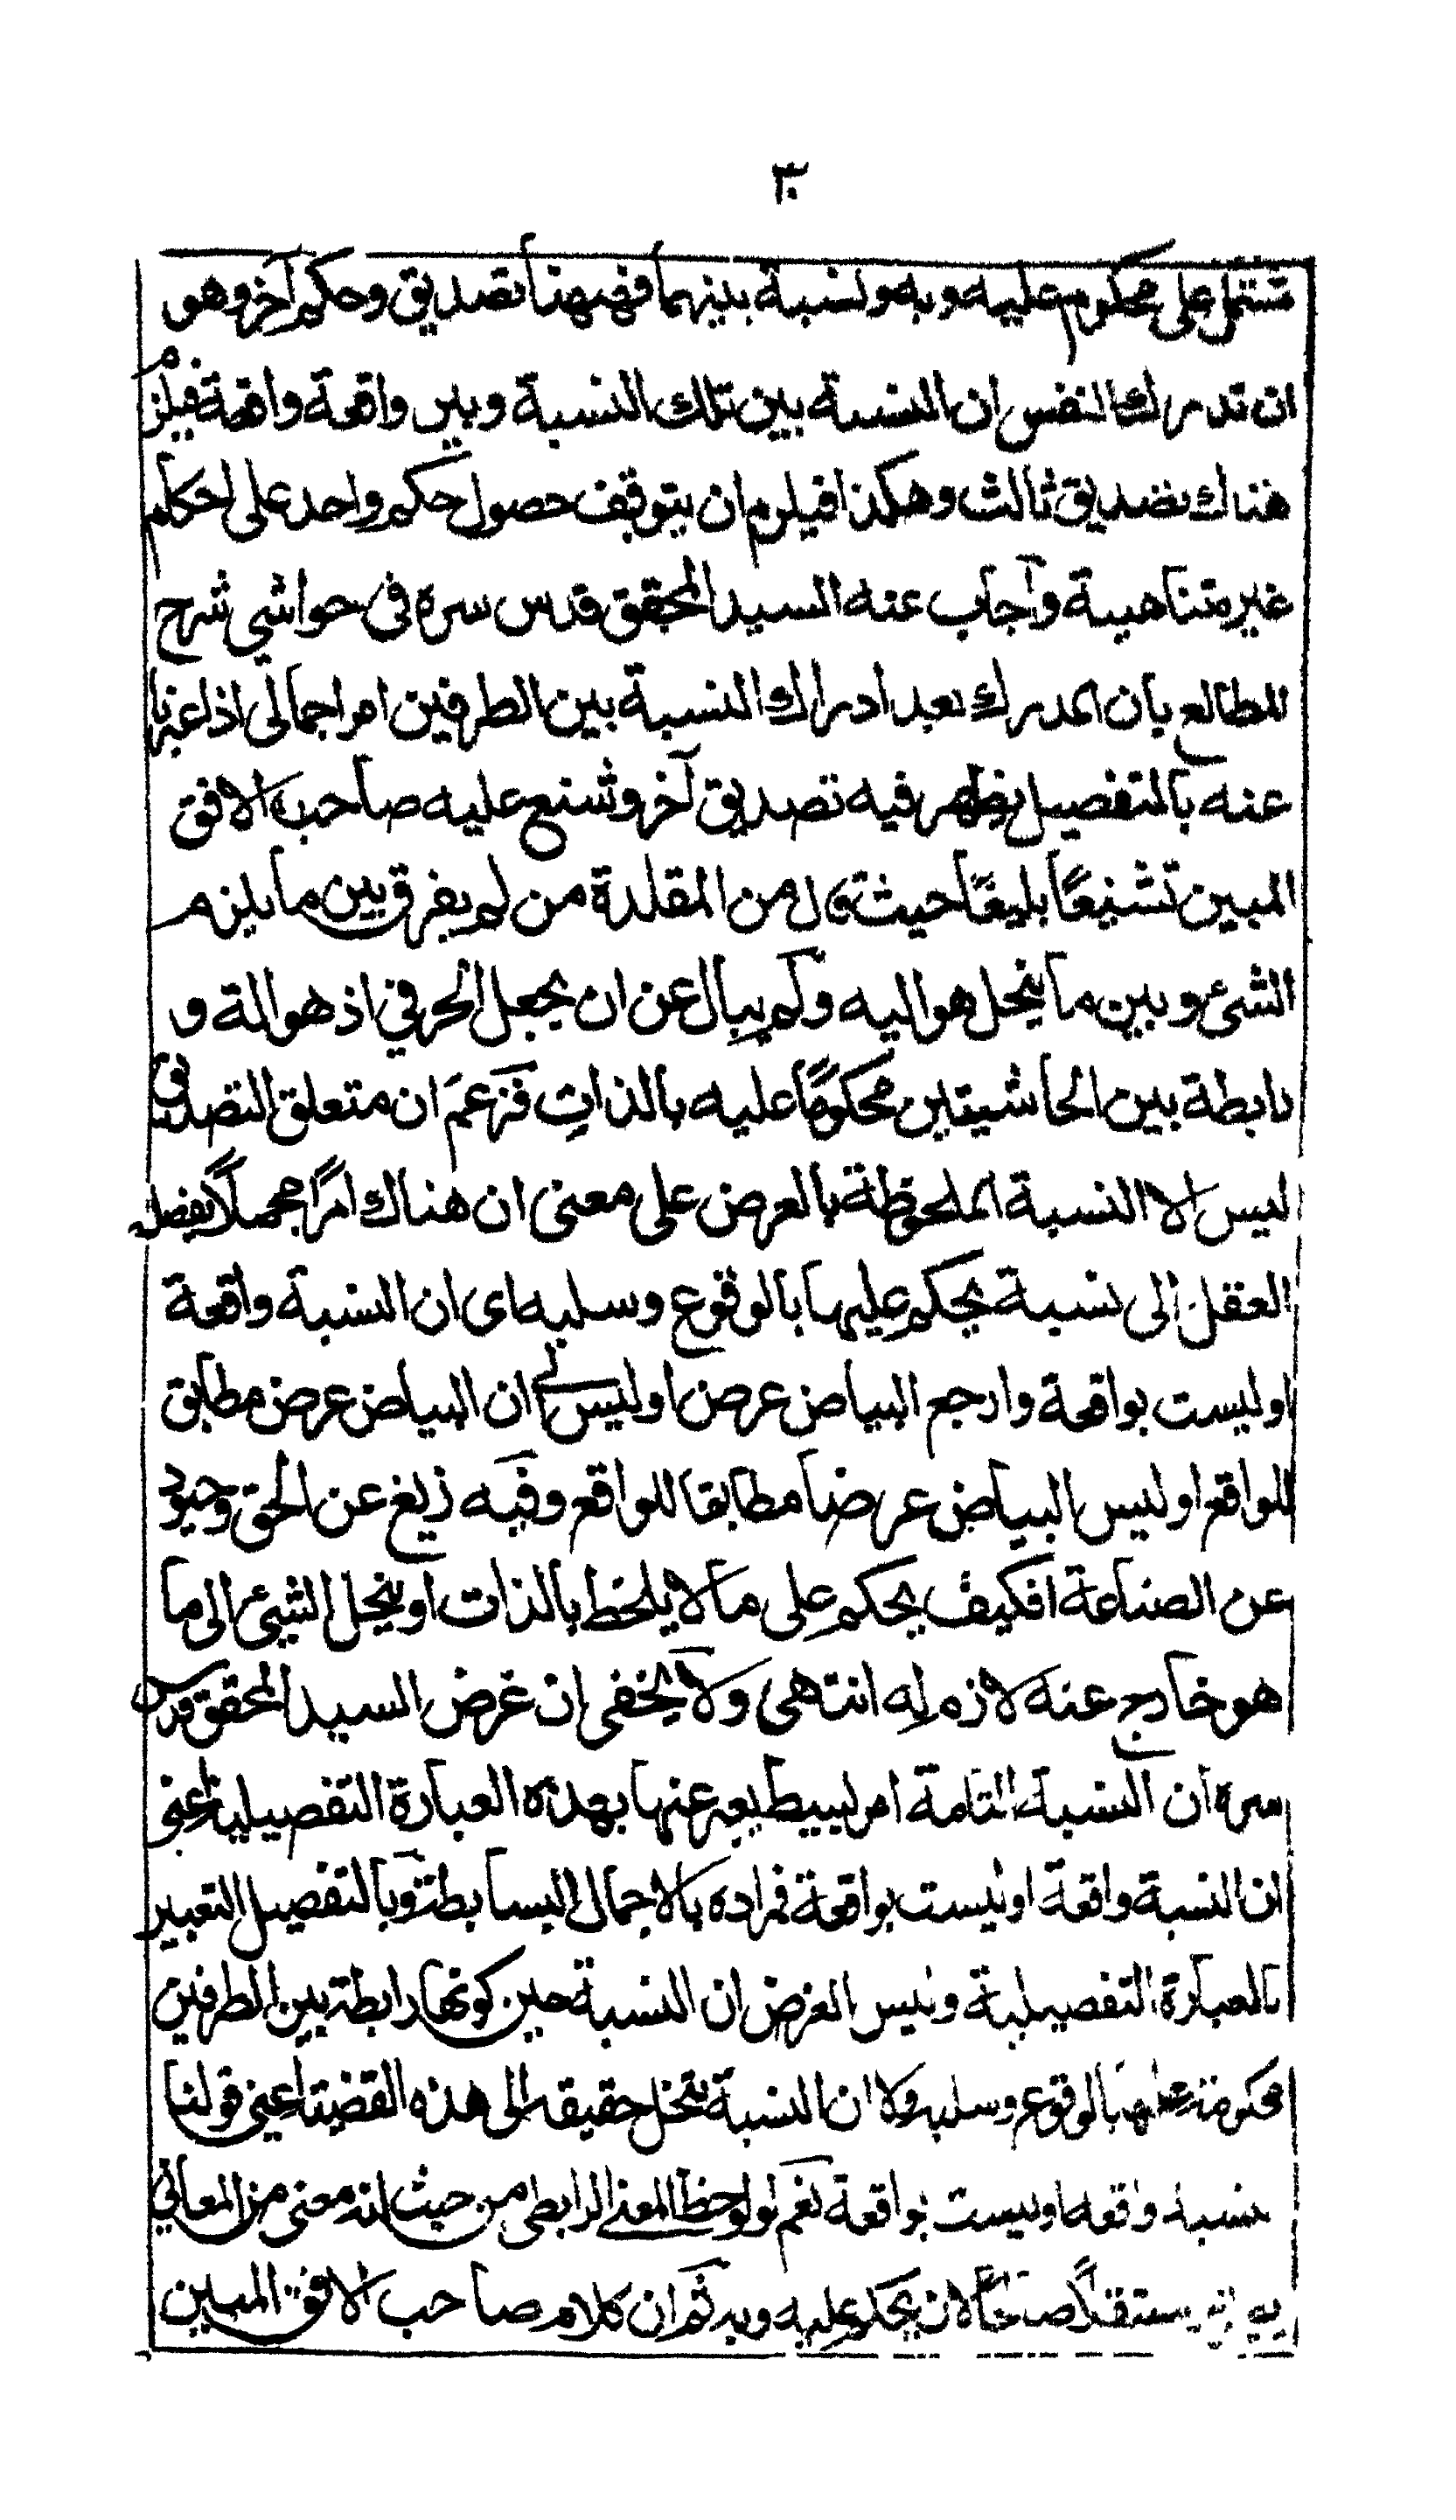 ٣٠
مشتمل على محكوم عليه وبه ونسبة بينهما فههنا تصديق وحكم آخر وهو
ان تدرك النفس ان النسبة بين تلك النسبة وبين واقعة واقعة فيلزم
هناك تصديق ثالث وهكذا فيلزم ان يتوقف حصول حكم واحد على احكام
غير متناهية وآجاب عنه السيد المحقق قدس سره فى حواشي شرح
المطالع بان المدرك بعد ادراك النسبة بين الطرفين امر اجمالى اذا عبرنا
عنه بالتفصيل يظهر فيه تصديق آخر وشنع عليه صاحب الافق
المبين تشنيعًا بليغًا حيث قال من المقلدة من لم يفرق بين ما يلزم
الشئ وبين ما ينحل هو اليه ولم يبال عن ان يجعل الحرفي اذ هو الة و
رابطة بين الحاشيتين محكومًا عليه بالذات فزعم ان متعلق التصديق
ليس الا النسبة الملحوظة بالعرض على معنى ان هناك امرًا مجملًا يفصله
العقل الى نسبة يحكم عليها بالوقوع وسلبه اى ان النسبة واقعة
او ليست بواقعة وارجع البياض عرض او ليس الى ان البياض عرض مطابق
للواقع او ليس البياض عرضا مطابقا للواقع وفيه زيغ عن الحق وحيود
عن الصناعة افكيف يحكم على ما لا يلحظ بالذات او ينحل الشئ الى ما
هو خارج عنه لازم له انتهى ولا يخفى ان غرض السيد المحقق قدس
سره ان النسبة التامة امر بسيط يعبر عنها بهذه العبارة التفصيلية اعنى
ان النسبة واقعة او ليست بواقعة فمراده بالاجمال البساطة وبالتفصيل التعبير
بالعبارة التفصيلية وليس الغرض ان النسبة حين كونها رابطة بين الطرفين
محكومة عليها بالوقوع وسلبه ولا ان النسبة تنحل حقيقة الى هذه القضية اعنى قولنا
نسبة واقعة او ليست بواقعة نعم لو لوحظ المعنى الرابطى من حيث انه معنى من المعاني
مستقلًا صالحًا لان يحكم عليه وبه ثم ان كلام صاحب الافق المبين